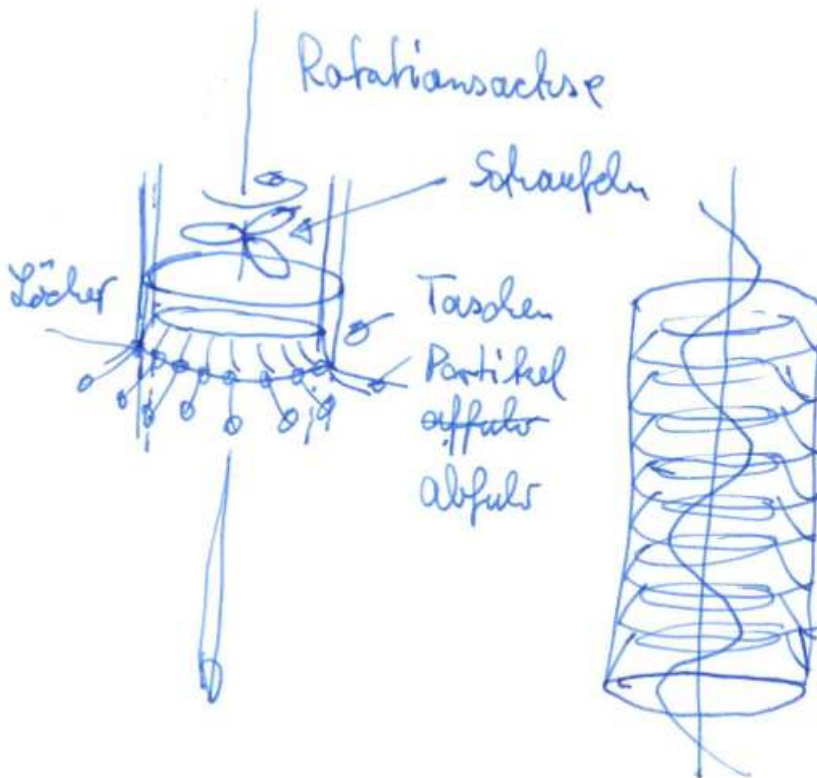 Rotationsachse
Schaufeln
Löcher
Taschen
Partikel
abfuhr